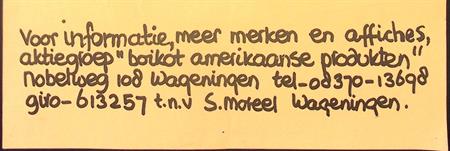 Voor informatie, meer merken en affiches,
aktiegroep "boikot amerikaanse produkten"
nobelweg 108 Wageningen tel-08370-13698
giro-613257 t.n.v S.Moreel Wageningen.